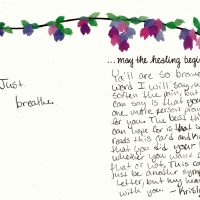 Just
breathe.
...may the healing begin
Ya'll are so brave
word I will say,
soften the pain, but
can say is that you
one more person pray
for you. The best thi
can hope for is that s
reads this card and kn
that you did your
whether you want
that or not. This ca
just be another symp
letter, but my hear
with you. ~ Kristy